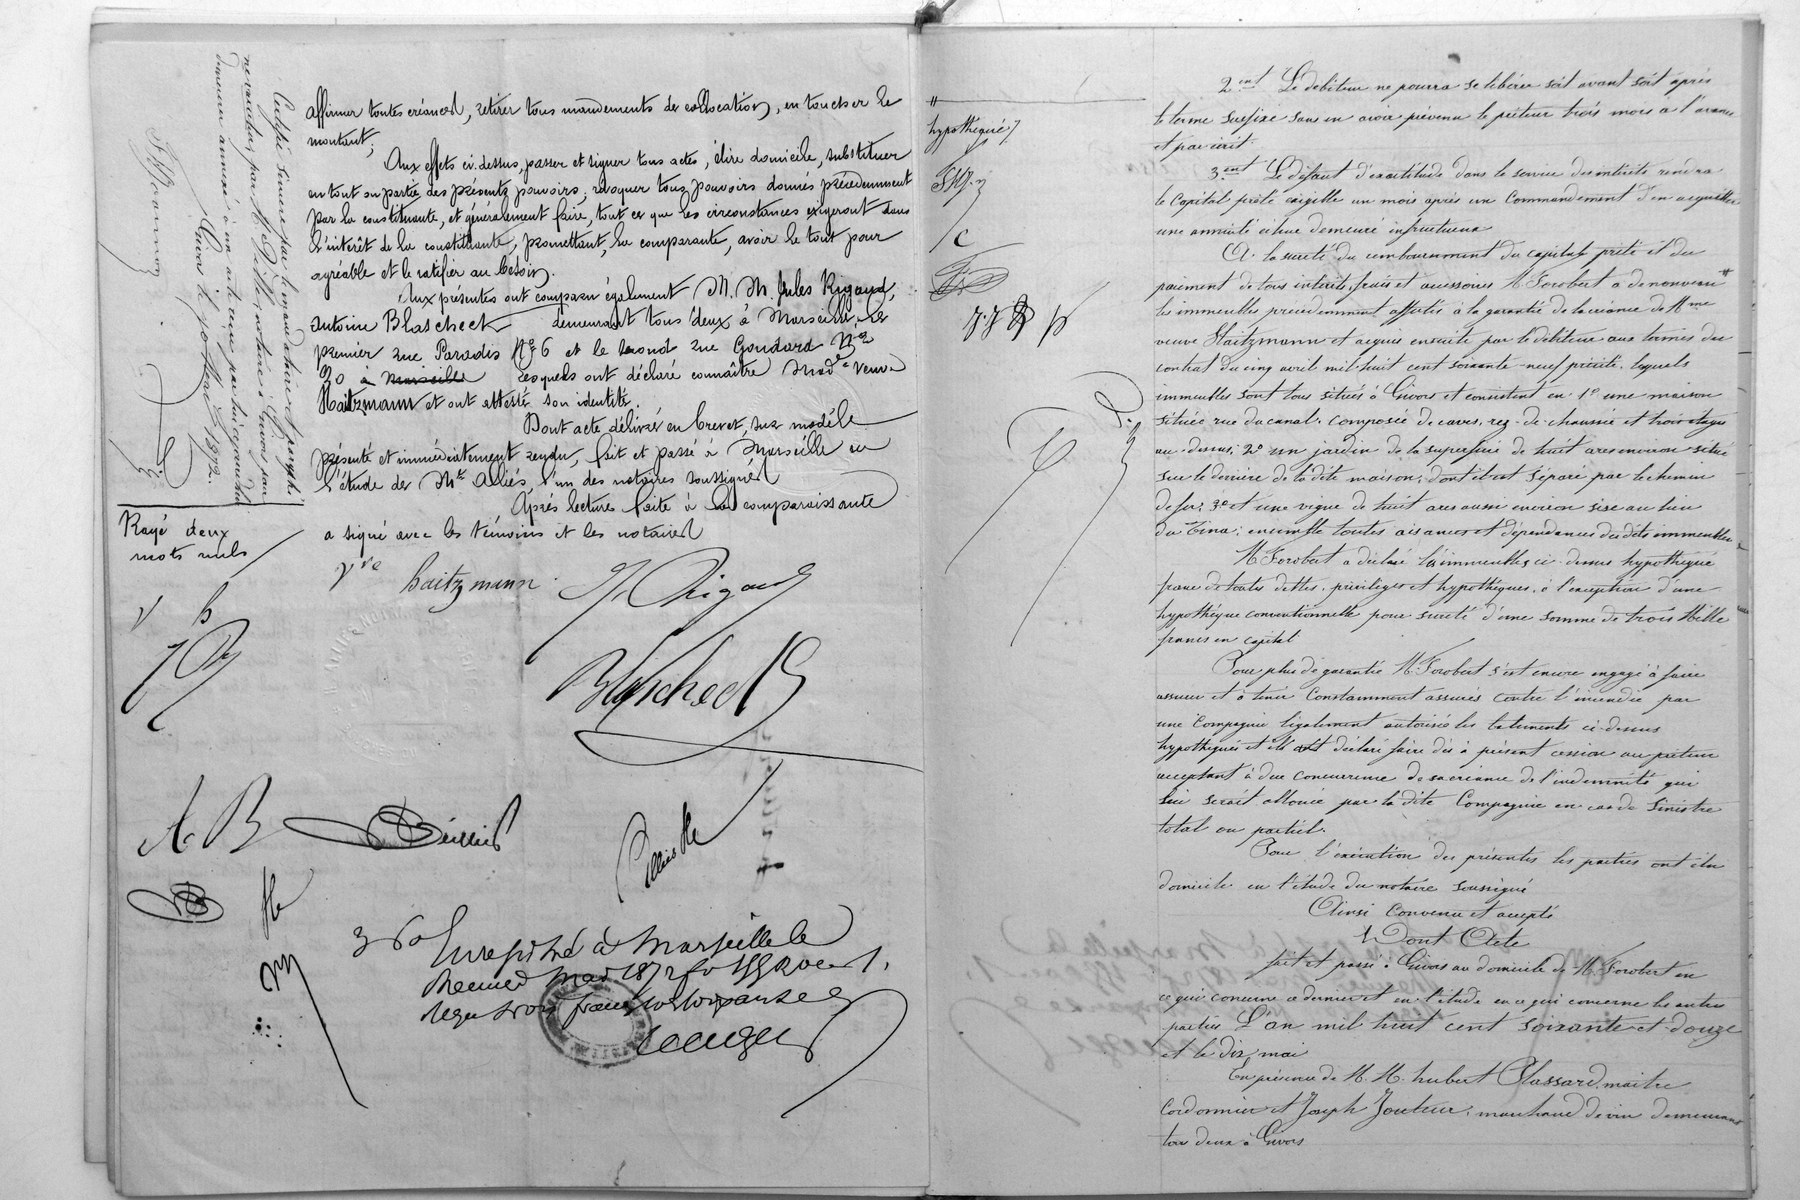 affirmer toutes créances, retirer tous mandements de collocation, en toucher le
montant;
Aux effets ci-dessus, passer et signer tous actes, élire domicile, substituer
en tout ou partie des présents pouvoirs, révoquer tous pouvoirs donnés précédemment
par la constituante, et généralement faire, tout ce que les circonstances exigeront dans
l'intérêt de la constituante, promettant, la comparante, avoir le tout pour
agréable et le ratifier au besoin.
Aux présentes ont comparu également M. M. Jules Rigaud,
Antoine Blascheck demeurant tous deux à Marseille, le
premier rue Paradis Nº 6 et le second rue Goudard Nº
30 à Marseille lesquels ont déclaré connaître Made Veuve
Haitzmann et ont attesté son identité.
Dont acte délivré en brevet, sur modèle
présenté et immédiatement rendu, fait et passé à Marseille en
l'étude de Me Alliés, l'un des notaires soussignés
Après lecture faite à la comparaissante
a signé avec les témoins et les notaires
Vve haitzmann J. Rigaud
Blascheck
Certifié sincère par le mandataire et paraphé
ne varietur par Me notaire à Givors pour
demeurer annexé à un acte reçu par lui cejourd'hui
Givors le 10 Mai 1872.
Rayé deux
mots nuls
V h
JR
A. B
360 Enregistré à Marseille le
premier mai 1872 fo
reçu trois francs
hypothéqué
2.ent Le débiteur ne pourra se libérer soit avant soit après
le terme susfixé sans en avoir prévenu le prêteur trois mois à l'avance
et par écrit.
3.ent Le défaut d'exactitude dans le service des intérêts rendra
le Capital prêté exigible un mois après un Commandement d'en acquitter
une annuité échue demeuré infructueux
A la sureté du remboursement du capital prêté et du
paiement de tous intérêts, frais et accessoires M Forobert a de nouveau #
les immeubles précédemment affectés à la garantie de la créance de Mme
veuve Haitzmann et acquis ensuite par le débiteur aux termes du
contrat du cinq avril mil huit cent soixante-neuf précité, lesquels
immeubles sont tous situés à Givors et consistent en 1º une maison
située rue du canal, composée de caves, rez-de-chaussée et trois étages
au-dessus; 2º un jardin de la superficie de huit ares environ situé
sur le derrière de la dite maison, dont il est séparé par le chemin
de fer; 3º et une vigne de huit ares aussi environ sise au lieu
du Tina; ensemble toutes aisances et dépendances des dits immeubles
M Forobert a déclaré les immeubles ci-dessus hypothéqué
francs de toutes dettes, privilèges et hypothèques, à l'exception d'une
hypothèque conventionnelle pour sureté d'une somme de trois Mille
francs en capital
Pour plus de garantie M. Forobert s'est encore engagé à faire
assurer et à tenir Constamment assurés contre l'incendie par
une Compagnie légalement autorisée les batiments ci-dessus
hypothéqués et il a déclaré faire dès à présent cession au prêteur
acceptant à due concurrence de sa créance de l'indemnité qui
lui serait allouée par la dite Compagnie en cas de sinistre
total ou partiel.
Pour l'exécution des présentes les parties ont élu
domicile en l'étude du notaire soussigné
Ainsi convenu et accepté
Dont Acte
fait et passé à Givors au domicile de M. Forobert en
ce qui concerne ce dernier et en l'étude en ce qui concerne les autres
parties L'an mil huit cent soixante et douze
et le dix mai
En présence de M. M. hubert Plassard, maître
Cordonnier et Joseph Jouteur, marchand de vin demeurant
tous deux à Givors